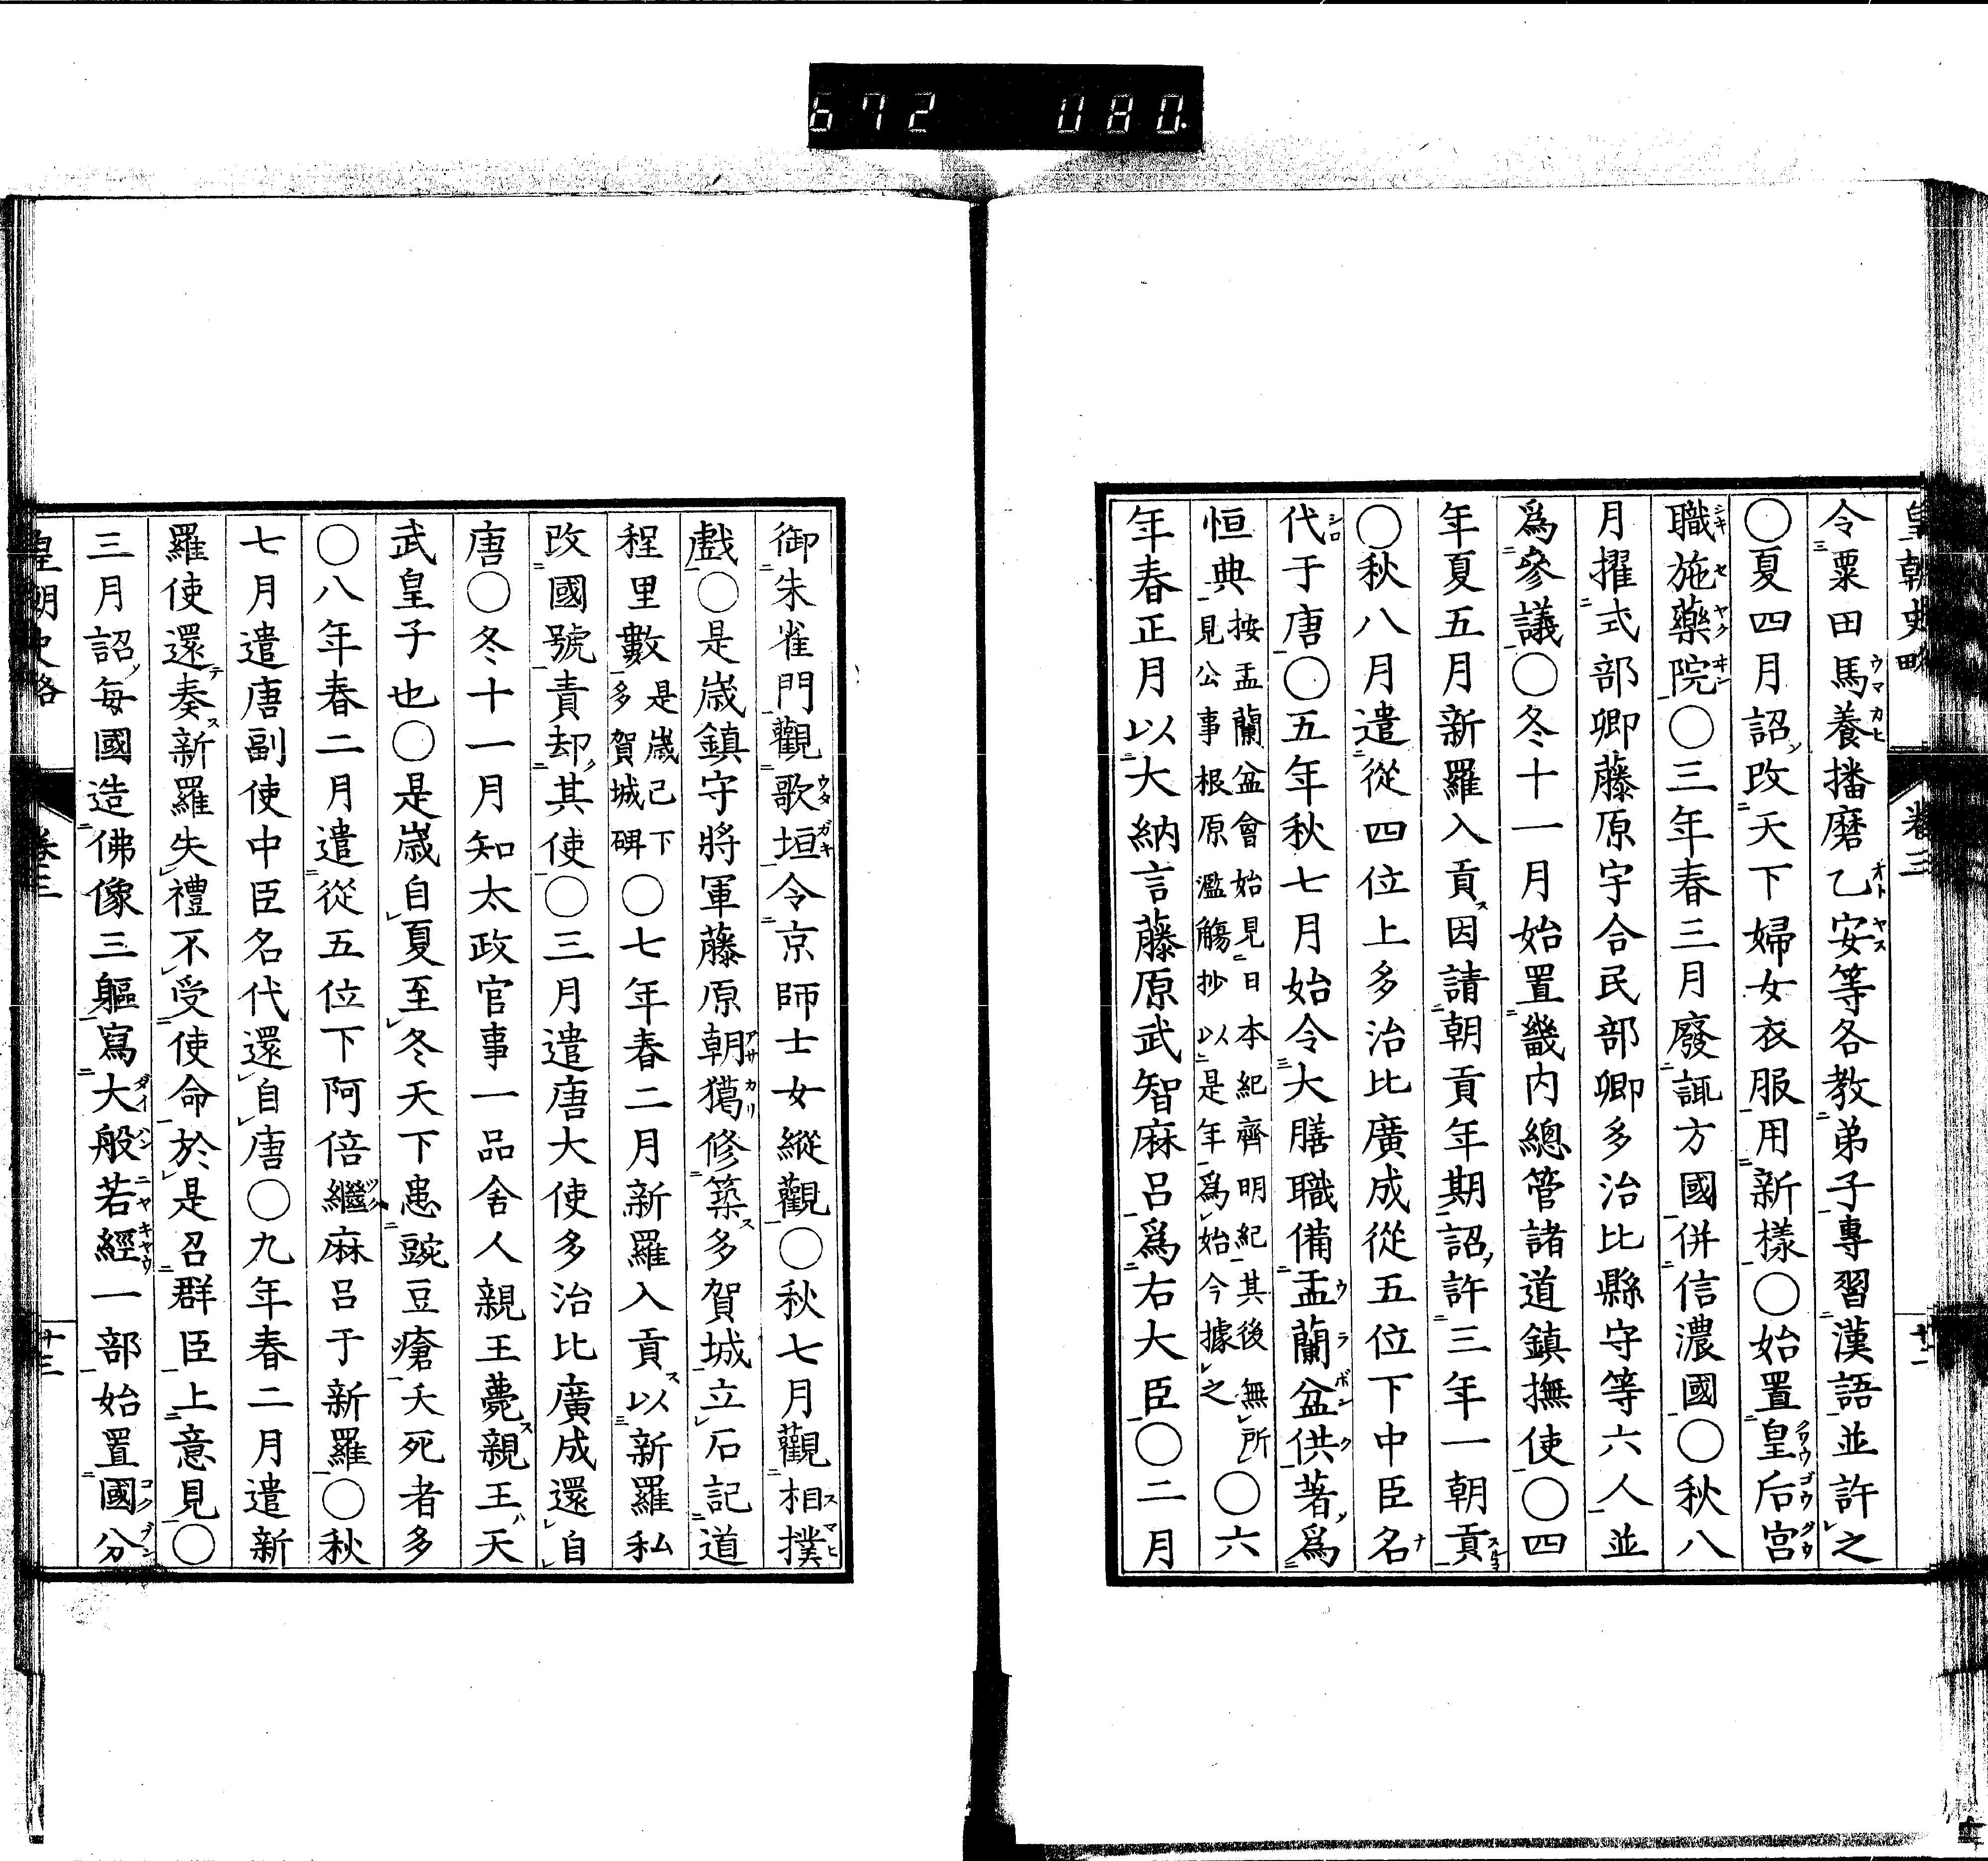 672 080.
皇朝史略 卷三
令粟田馬養播磨乙安等各教弟子專習漢語並許之
〇夏四月詔改天下婦女衣服用新樣〇始置皇后宮
職施藥院〇三年春三月廢諏方國併信濃國〇秋八
月擢式部卿藤原宇合民部卿多治比縣守等六人並
爲參議〇冬十一月始置畿內總管諸道鎮撫使〇四
年夏五月新羅入貢因請朝貢年期詔許三年一朝貢
〇秋八月遣從四位上多治比廣成從五位下中臣名
代于唐〇五年秋七月始令大膳職備盂蘭盆供著爲
恒典按盂蘭盆會始見日本紀齊明紀其後無所
見公事根原濫觴抄以是年爲始今據之〇六
年春正月以大納言藤原武智麻呂爲右大臣〇二月
御朱雀門觀歌垣令京師士女縱觀〇秋七月觀相撲
戲〇是歲鎮守將軍藤原朝獦修築多賀城立石記道
程里數是歲己下
多賀城碑〇七年春二月新羅入貢以新羅私
改國號責却其使〇三月遣唐大使多治比廣成還自
唐〇冬十一月知太政官事一品舍人親王薨親王天
武皇子也〇是歲自夏至冬天下患豌豆瘡夭死者多
〇八年春二月遣從五位下阿倍繼麻呂于新羅〇秋
七月遣唐副使中臣名代還自唐〇九年春二月遣新
羅使還奏新羅失禮不受使命於是召群臣上意見〇
三月詔每國造佛像三軀寫大般若經一部始置國分
皇朝史略 卷三 廿三